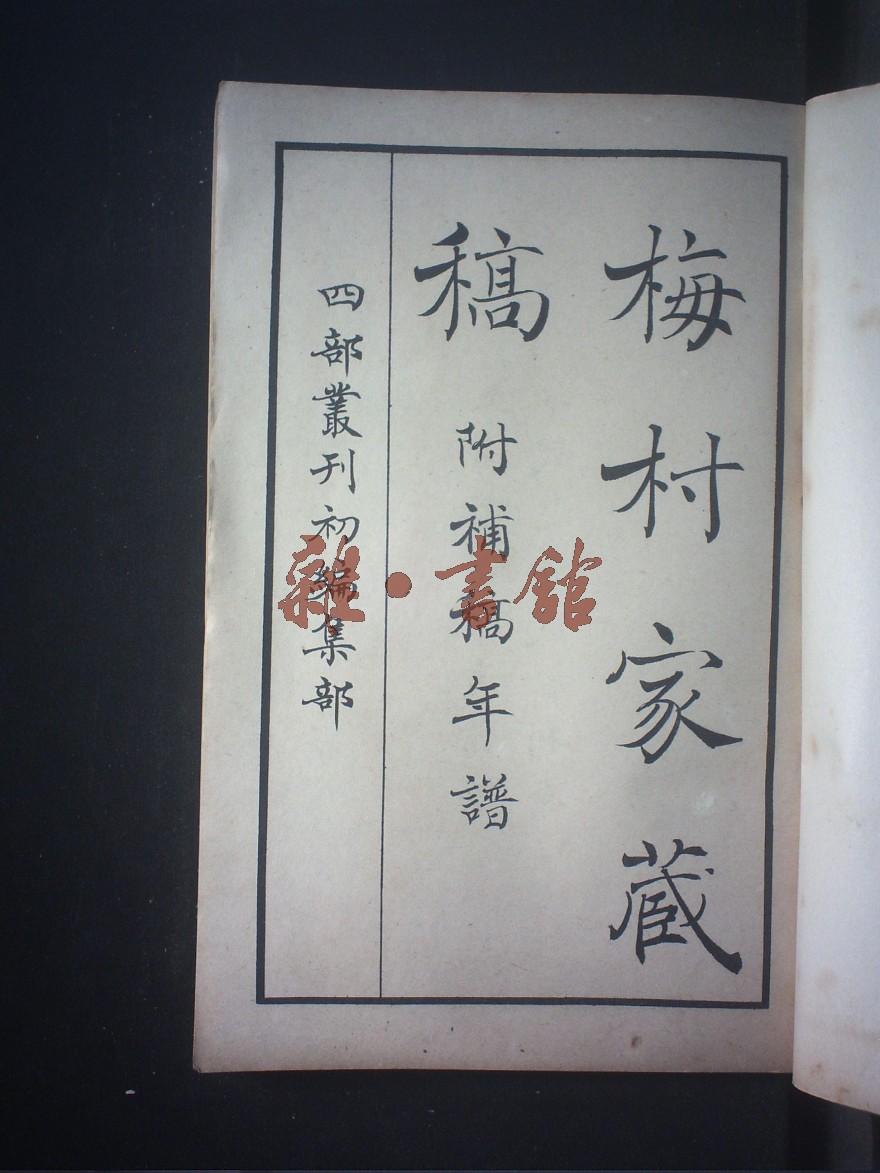 梅村家蔵
稿 附補稿年譜
四部叢刊初編集部
雜·書館